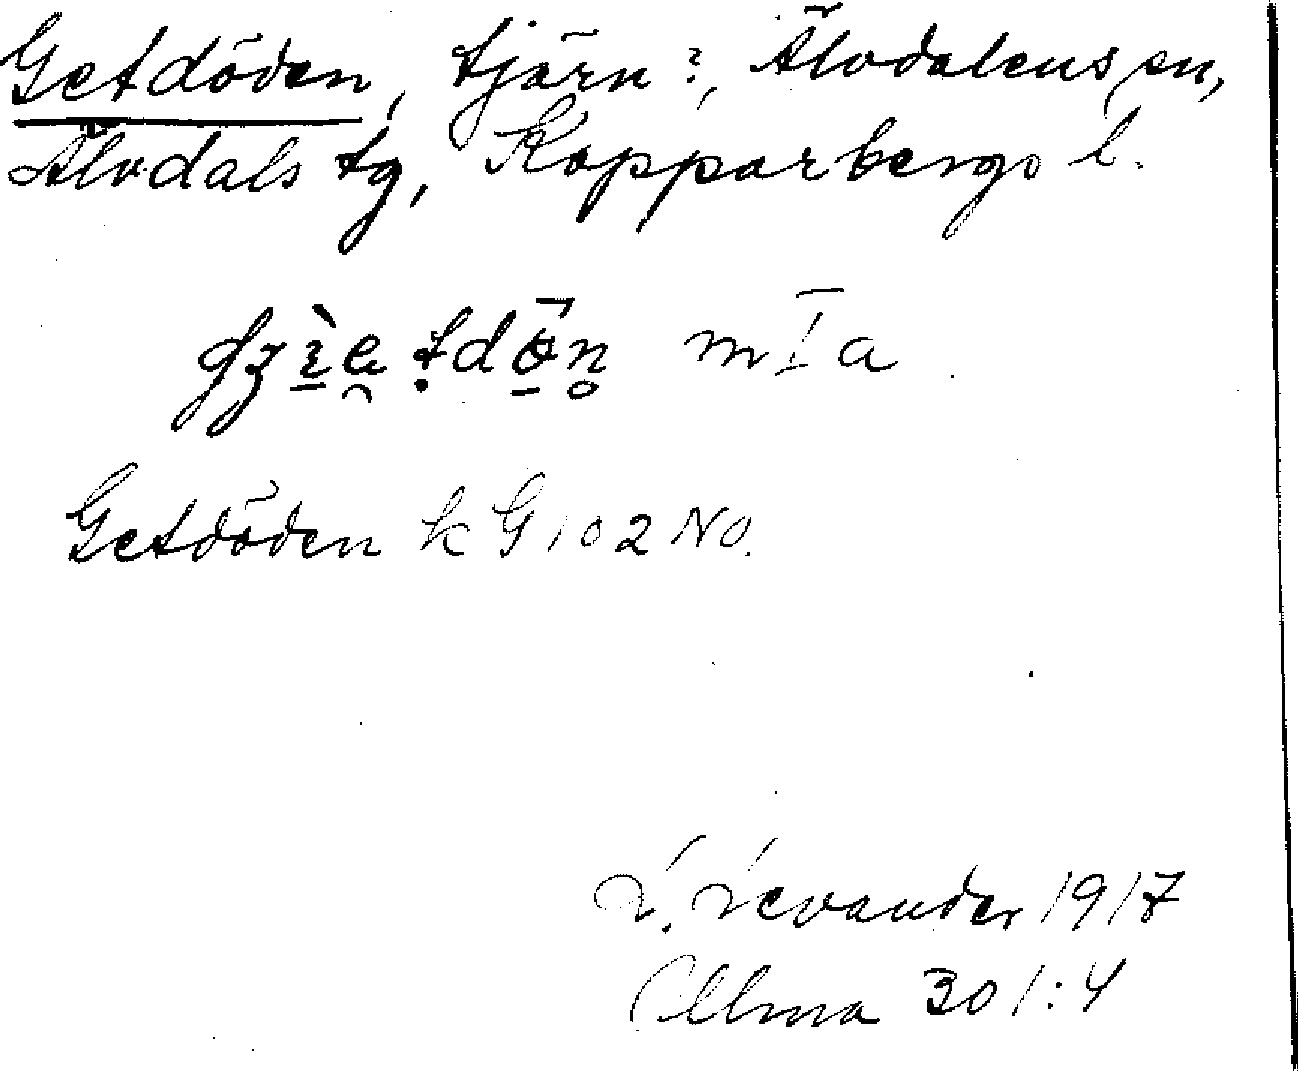 Getdöden, tjärn?, Älvdalens sn,
Älvdals tg, Kopparbergs l.
mIa
Getdöden k G 102 NO.
L. Levander 1917
Ullma 301:4